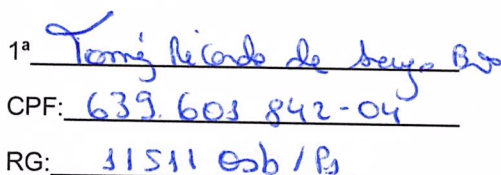 1ª Tomáz Ricardo de Souza
CPF: 639.601 842-04
RG: 11511 OAB/PA